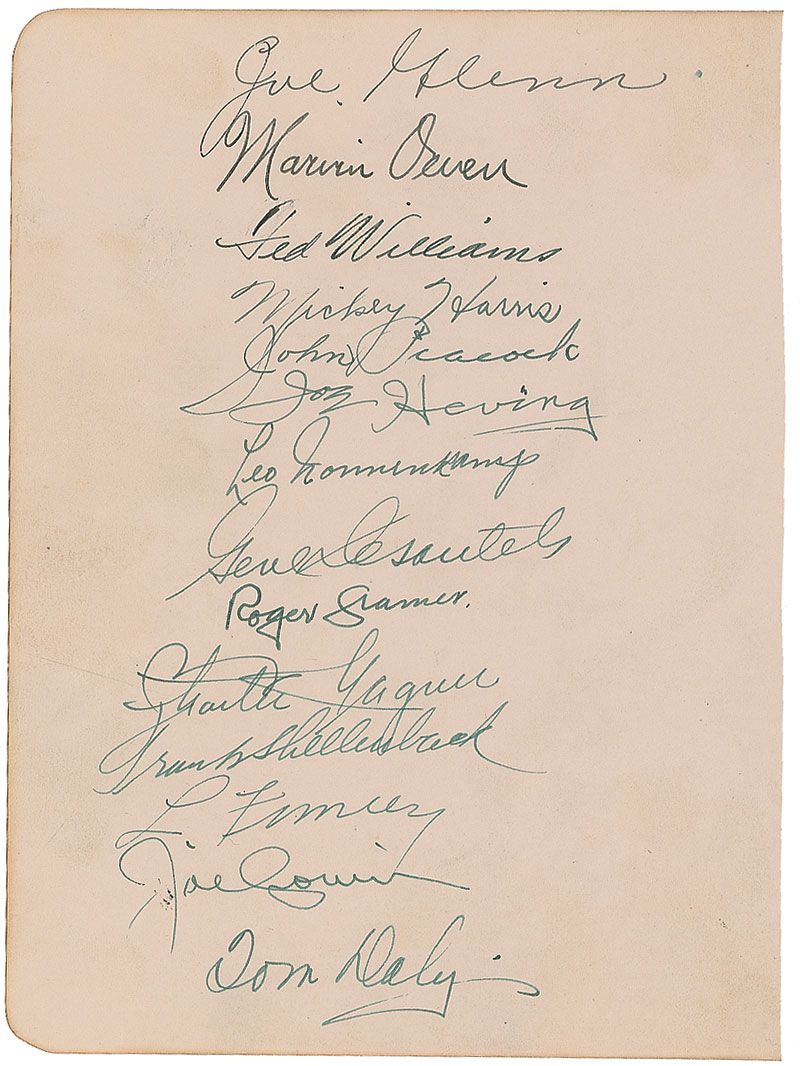 Joe Glenn
Marvin Owen
Ted Williams
Mickey Harris
John Peacock
Joe Heving
Leo Nonnenkamp
Gene Desautels
Roger Cramer.
Charlie Wagner
Frank Shellenback
L Finney
Joe Cronin
Tom Daly